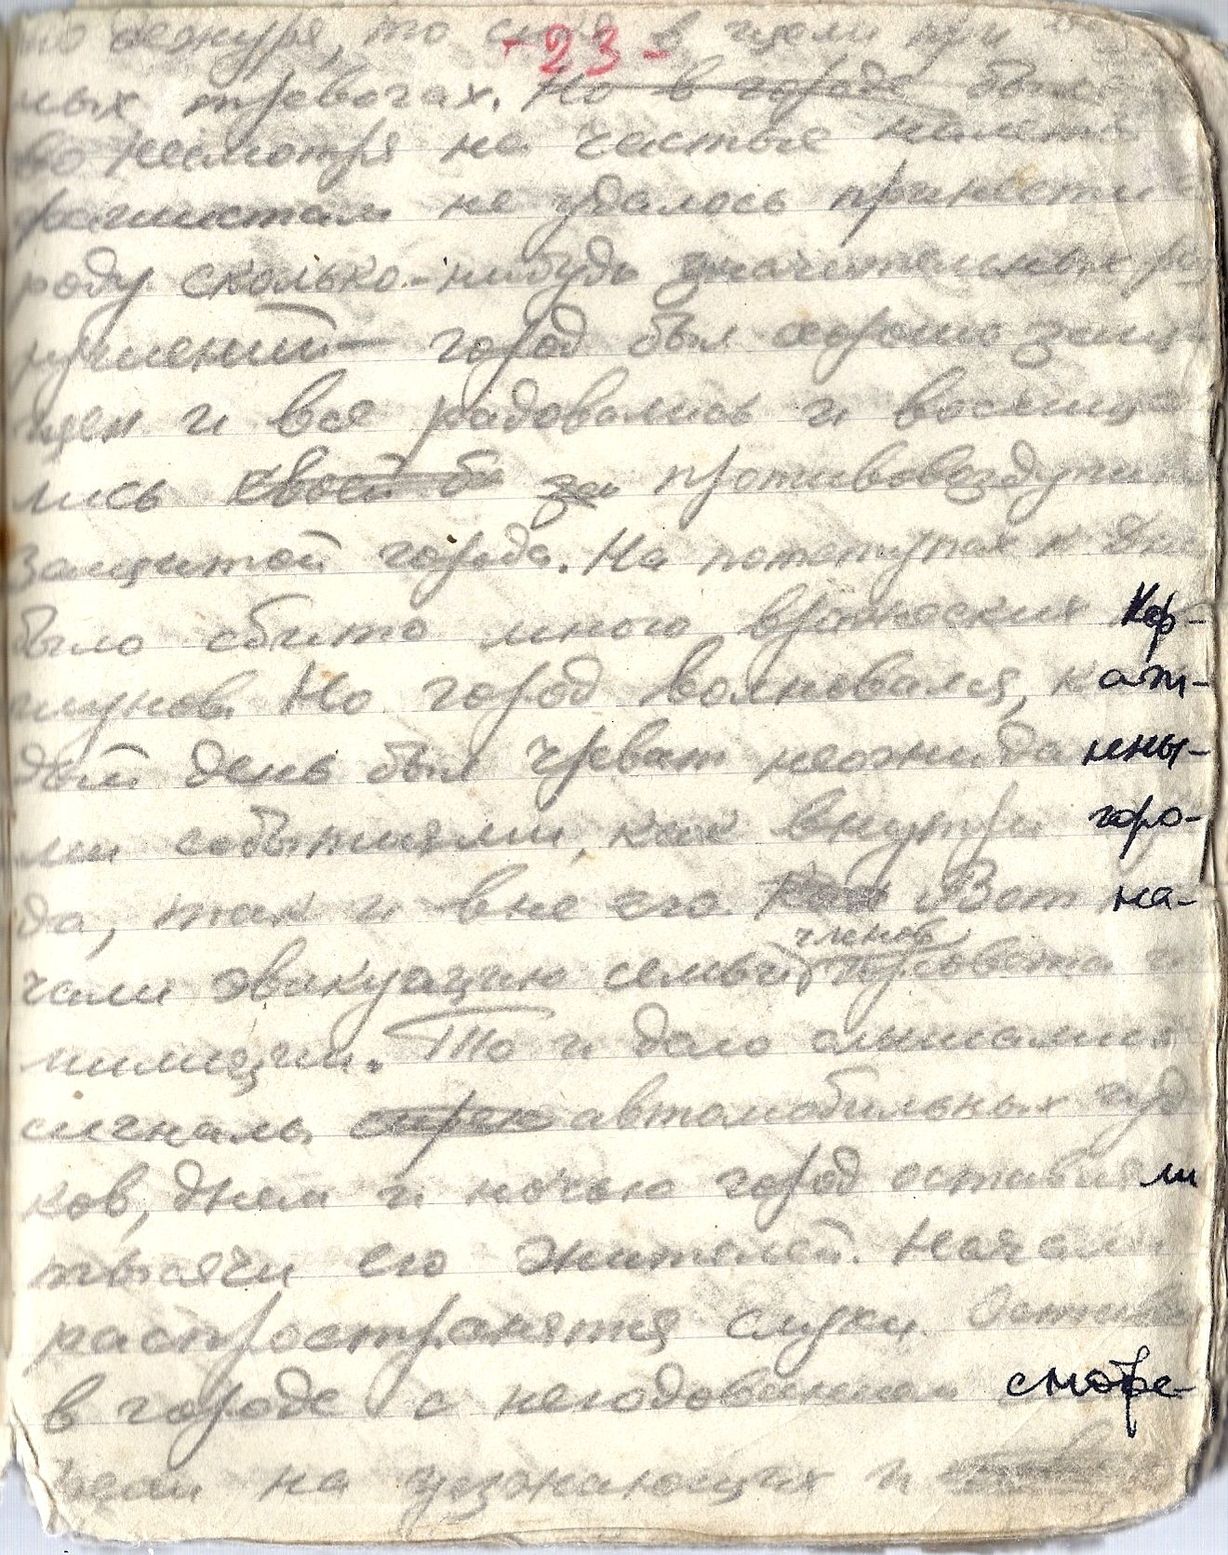 -23-
то дежуря, то сидя в щели при
ных тревогах. Но в городе было
но несмотря на частые налеты
фашистам не удалось принести
роду сколько-нибудь значительных ра
рушений - город был хорошо защи
щен и все радовались и восхища
лись своей за противовоздушн
защитой города. На подступах к Дн
было сбито много вражеских кор-
шунов. Но город волновался, каж-
дый день был чреват неожиданны-
ми событиями, как внутри горо-
да, так и вне его. Вот на-
чали эвакуацию семьи членов горсовета и
милиции. То и дело слышались
сигналы автомобильных гуд
ков, днем и ночью город оставляли
тысячи его жителей. Начали
распространятся слухи.
в городе с негодованием смотре-
на уезжающих и